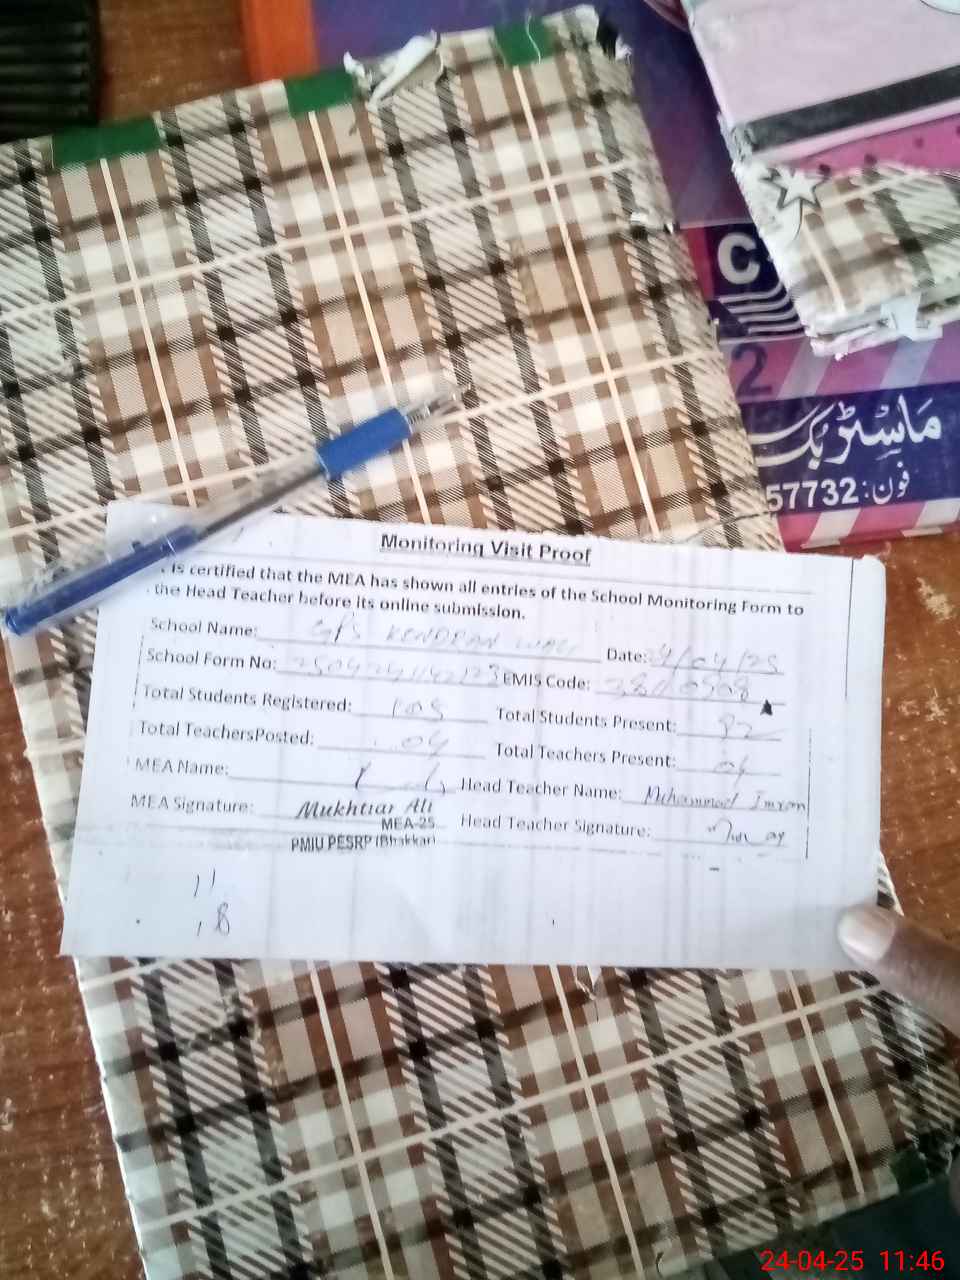 C
2
ماسٹر بک
57732 :فون
Monitoring Visit Proof
is certified that the MEA has shown all entries of the School Monitoring Form to
the Head Teacher before its online submission.
School Name: GPS Date: 24/04/25
School Form No: EMIS Code:
Total Students Registered: Total Students Present: 82
Total TeachersPosted: 04 Total Teachers Present: 04
MEA Name: Head Teacher Name: Muhammad Imran
MEA Signature: Mukhtiar Ali Head Teacher Signature:
MEA-25
PMIU PESRP (Bhakkar)
11
18
24-04-25 11:46